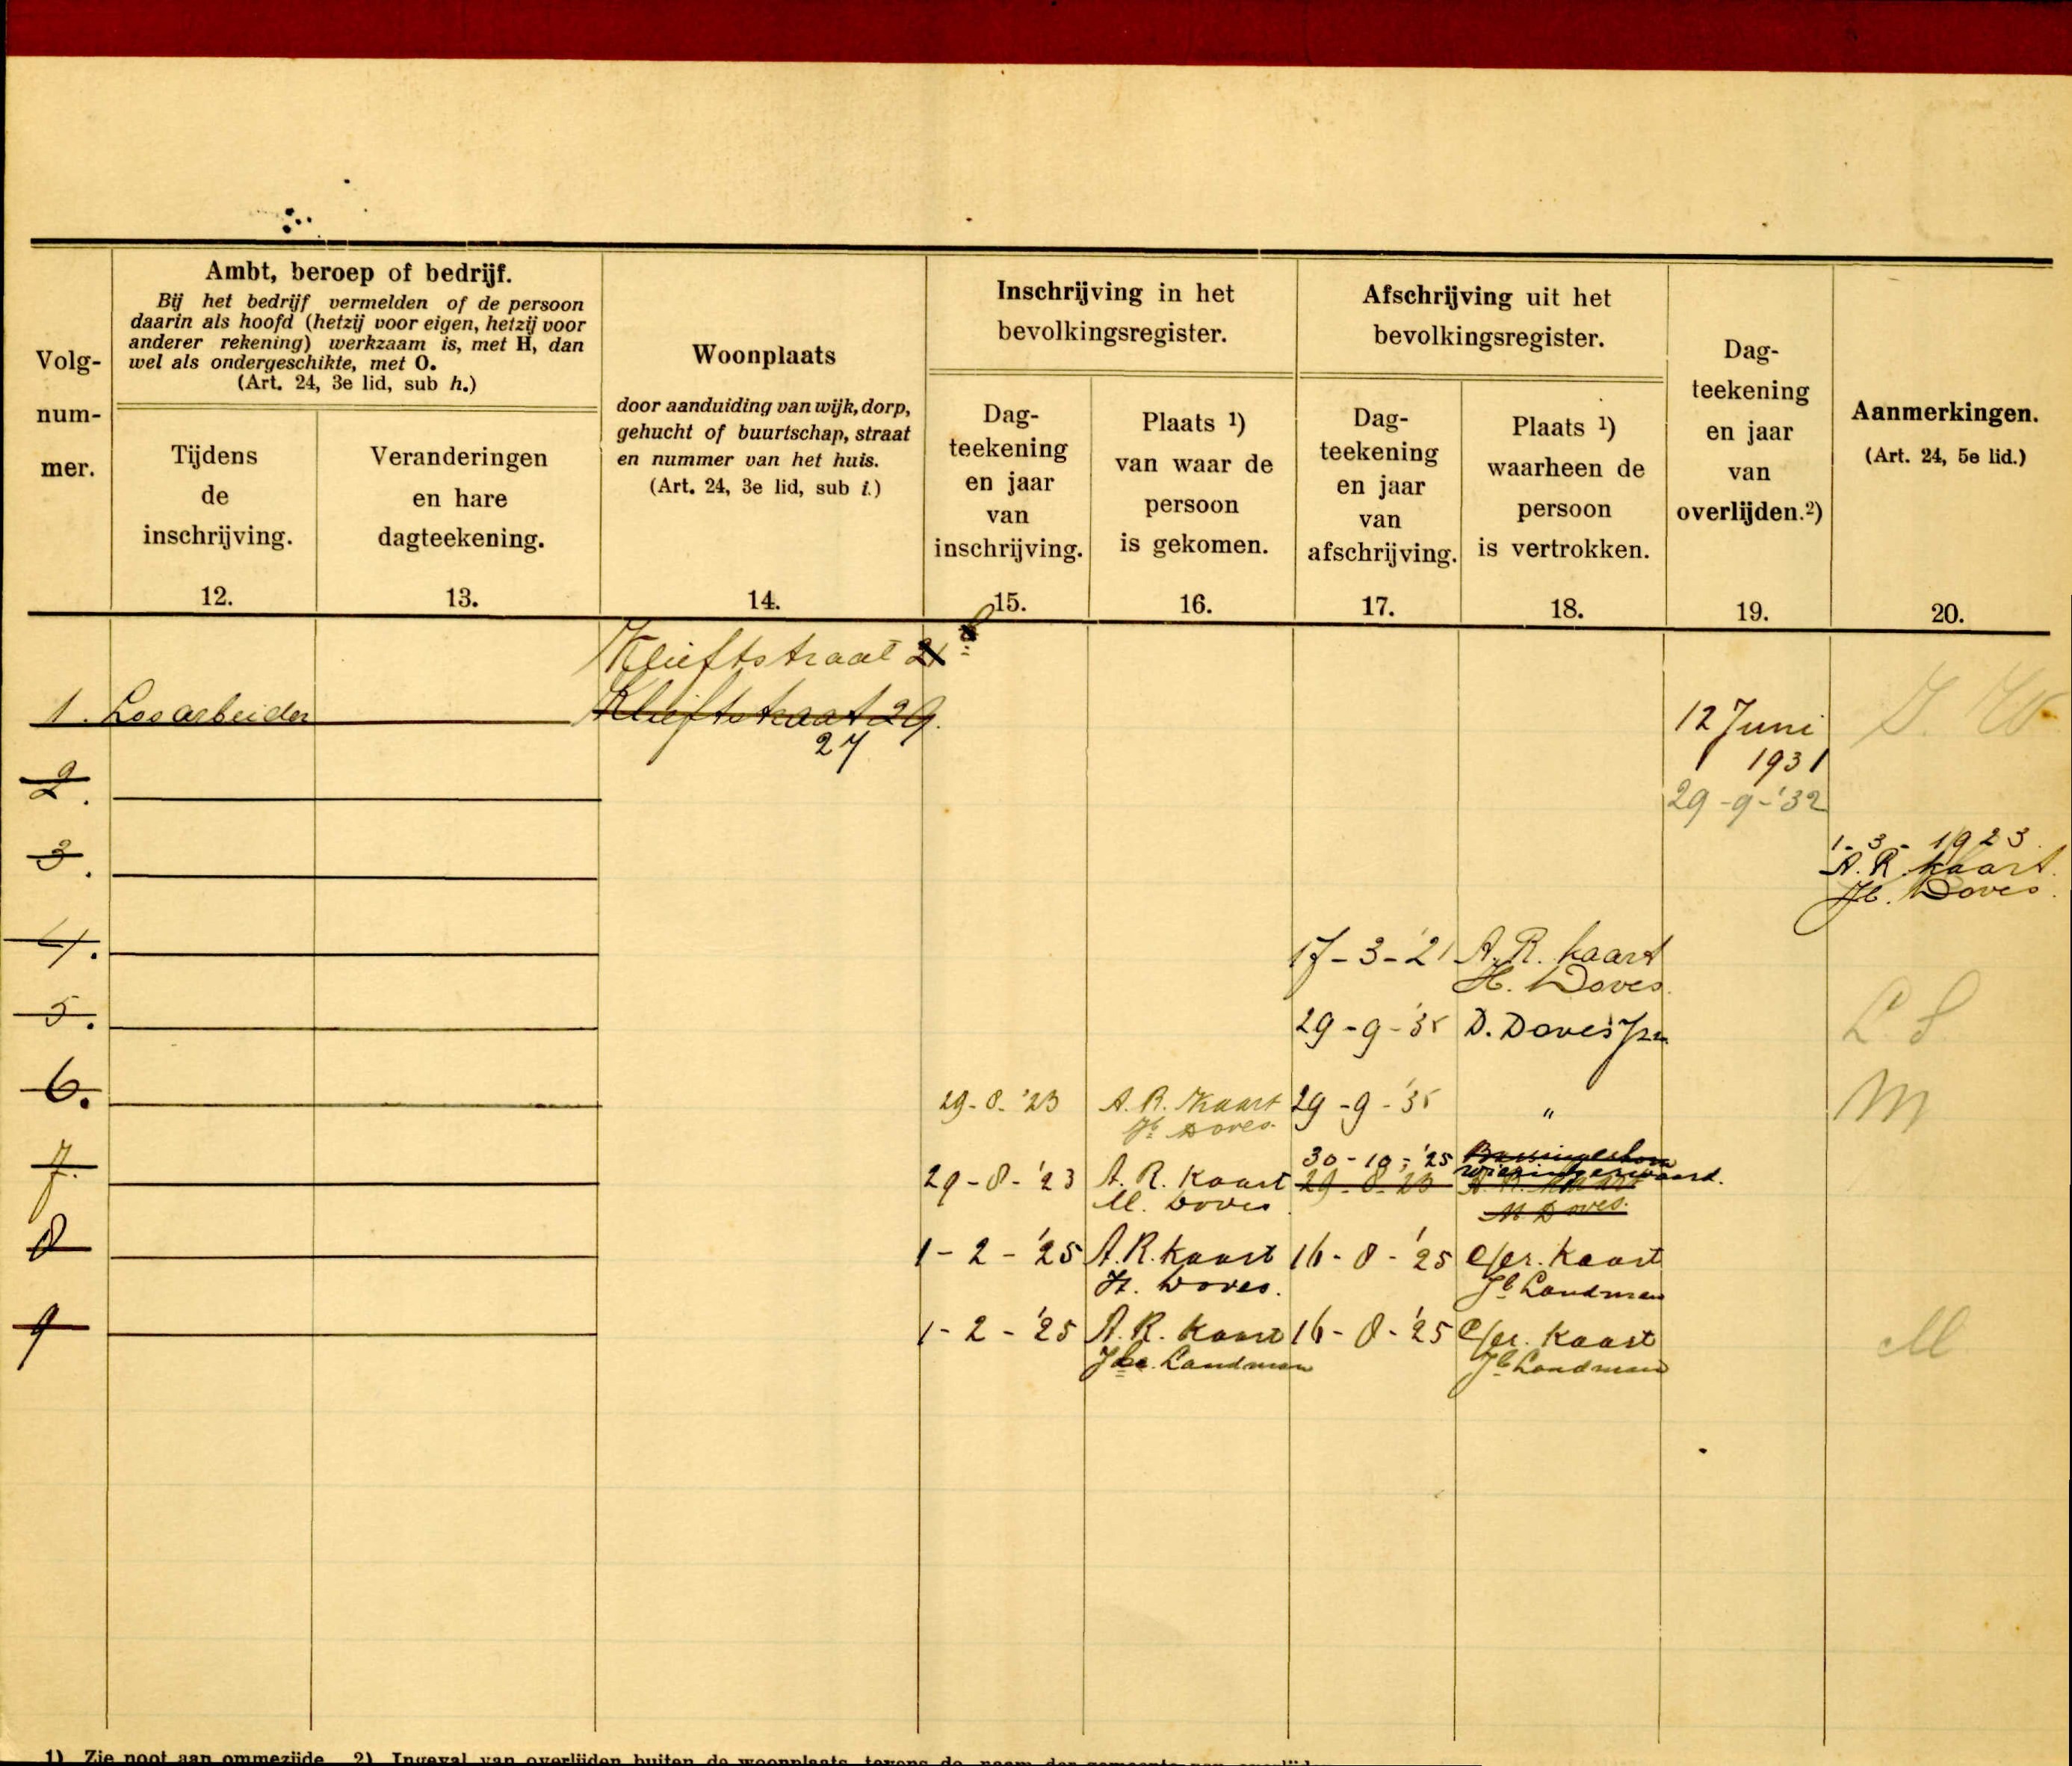 Volg-
num-
mer.
Ambt, beroep of bedrijf.
Bij het bedrijf vermelden of de persoon
daarin als hoofd (hetzij voor eigen, hetzij voor
anderer rekening) werkzaam is, met H, dan
wel als ondergeschikte, met O.
(Art. 24, 3e lid, sub h.)
Tijdens
de
inschrijving.
12.
Veranderingen
en hare
dagteekening.
13.
Woonplaats
door aanduiding van wijk, dorp,
gehucht of buurtschap, straat
en nummer van het huis.
(Art. 24, 3e lid, sub i.)
14.
Inschrijving in het
bevolkingsregister.
Dag-
teekening
en jaar
van
inschrijving.
15.
Plaats 1)
van waar de
persoon
is gekomen.
16.
Afschrijving uit het
bevolkingsregister.
Dag-
teekening
en jaar
van
afschrijving.
17.
Plaats 1)
waarheen de
persoon
is vertrokken.
18.
Dag-
teekening
en jaar
van
overlijden.2)
19.
Aanmerkingen.
(Art. 24, 5e lid.)
20.
Klieftstraat 21
1. Losarbeider Klieftstraat 29. 12 Juni
27
1931
2. 29-9-'32
3. 1-3-1923.
A. R. Kaart.
Jb. Doves.
4. 17-3-'21 A. R. kaart
H. Doves.
5. 29-9-'35 D. Doves Jzn L. S.
6. 29-8-'23 A. R. Kaart 29-9-'35 " M
Jb Doves.
30-10-'25 Barsingerhorn
wieringerwaard.
7. 29-8-'23 A. R. Kaart 29-8-23 A. R. Kaart
M. Doves M. Doves.
8 1-2-'25 A. R. Kaart 16-8-'25 Kaart
H. Doves. Jb Landman
9 1-2-'25 A. R. Kaart 16-8-'25 Kaart M
Landman Jb Landman
1) Zie noot aan ommezijde. 2) Ingeval van overlijden buiten de woonplaats, tevens de naam der gemeente van overlijden